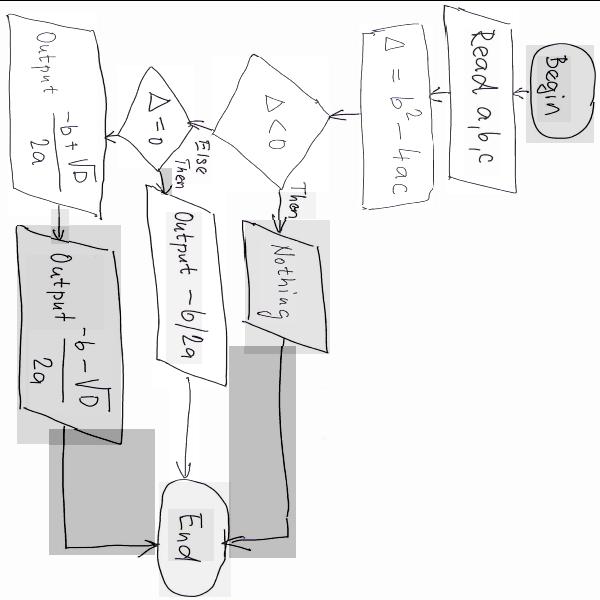 Begin
Read a,b,c
Δ = b² - 4ac
Δ < 0
Then
Nothing
Else
Δ = 0
Then
Output - b/2a
Output (-b + √D)/2a
Output (-b - √D)/2a
End